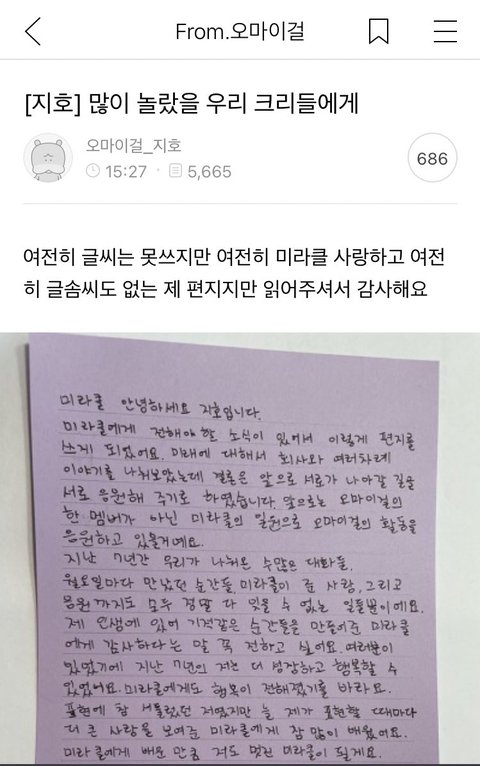 From.오마이걸
[지호] 많이 놀랐을 우리 크리들에게
오마이걸_지호
15:27 · 5,665
686
여전히 글씨는 못쓰지만 여전히 미라클 사랑하고 여전
히 글솜씨도 없는 제 편지지만 읽어주셔서 감사해요
미라클 안녕하세요 지호입니다.
미라클에게 전해야 할 소식이 있어서 이렇게 편지를
쓰게 되었어요. 미래에 대해서 회사와 여러차례
이야기를 나눠보았는데 결론은 앞으로 서로가 나아갈 길을
서로 응원해 주기로 하였습니다. 앞으로는 오마이걸의
한 멤버가 아닌 미라클의 일원으로 오마이걸의 활동을
응원하고 있을거예요.
지난 7년간 우리가 나눠온 수많은 대화들,
월요일마다 만났던 순간들, 미라클이 준 사랑, 그리고
응원까지도 모두 정말 다 잊을 수 없는 일들뿐이에요.
제 인생에 있어 기적같은 순간들을 만들어준 미라클
에게 감사하다는 말 꼭 전하고 싶어요. 여러분이
있었기에 지난 7년의 저는 더 성장하고 행복할 수
있었어요. 미라클에게도 행복이 전해졌기를 바라요.
표현에 참 서툴렀던 저였지만 늘 제가 표현할 때마다
더 큰 사랑을 보여준 미라클에게 참 많이 배웠어요.
미라클에게 배운 만큼 저도 멋진 미라클이 될게요.